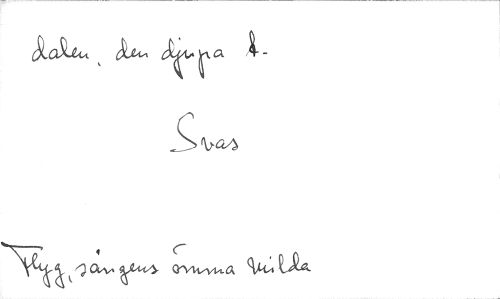 dalen, den djupa d.
Svas
Flyg, sångens ömma milda